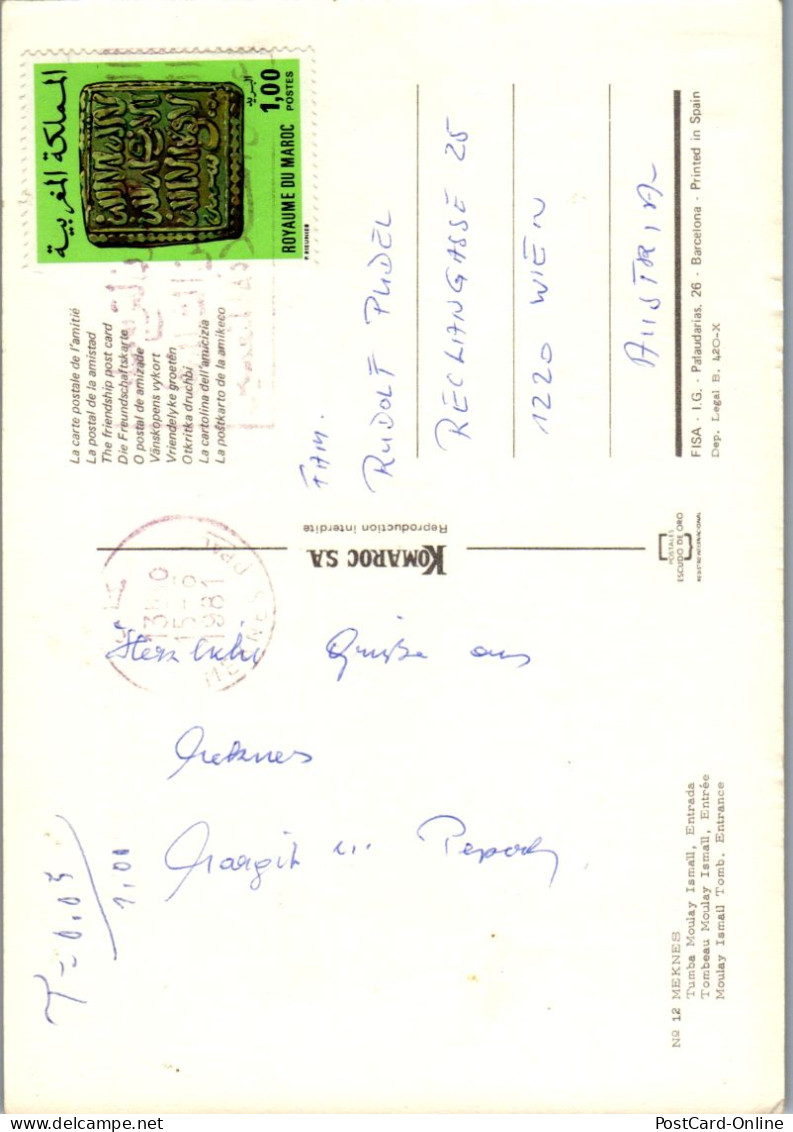 No 12 MEKNES
Tumba Moulay Ismaïl, Entrada
Tombeau Moulay Ismaïl, Entrée
Moulay Ismaïl Tomb. Entrance
T = 0.05
1.00
Herzliche Grüße aus
Meknes
Margit u.
13H
15-6
1981
MEKNES
KOMAROC S.A
Reproduction interdite
POSTALES
ESCUDO DE ORO
La carte postale de l'amitié
La postal de la amistad
The friendship post card
Die Freundschaftskarte
O postal de amizade
Vänskapens vykort
Vriendelyke groetèn
Otkritka druchbi
La cartolina dell'amicizia
La poŝtkarto de la amikeco
المملكة المغربية
البريد
1,00
POSTES
ROYAUME DU MAROC
FAM.
RUDOLF PUDEL
RECLAMGASSE 25
1220 WIEN
AUSTRIA
FISA - I.G. - Palaudarias, 26 - Barcelona - Printed in Spain
Dep. Legal B. 420-X
PostCard-Online